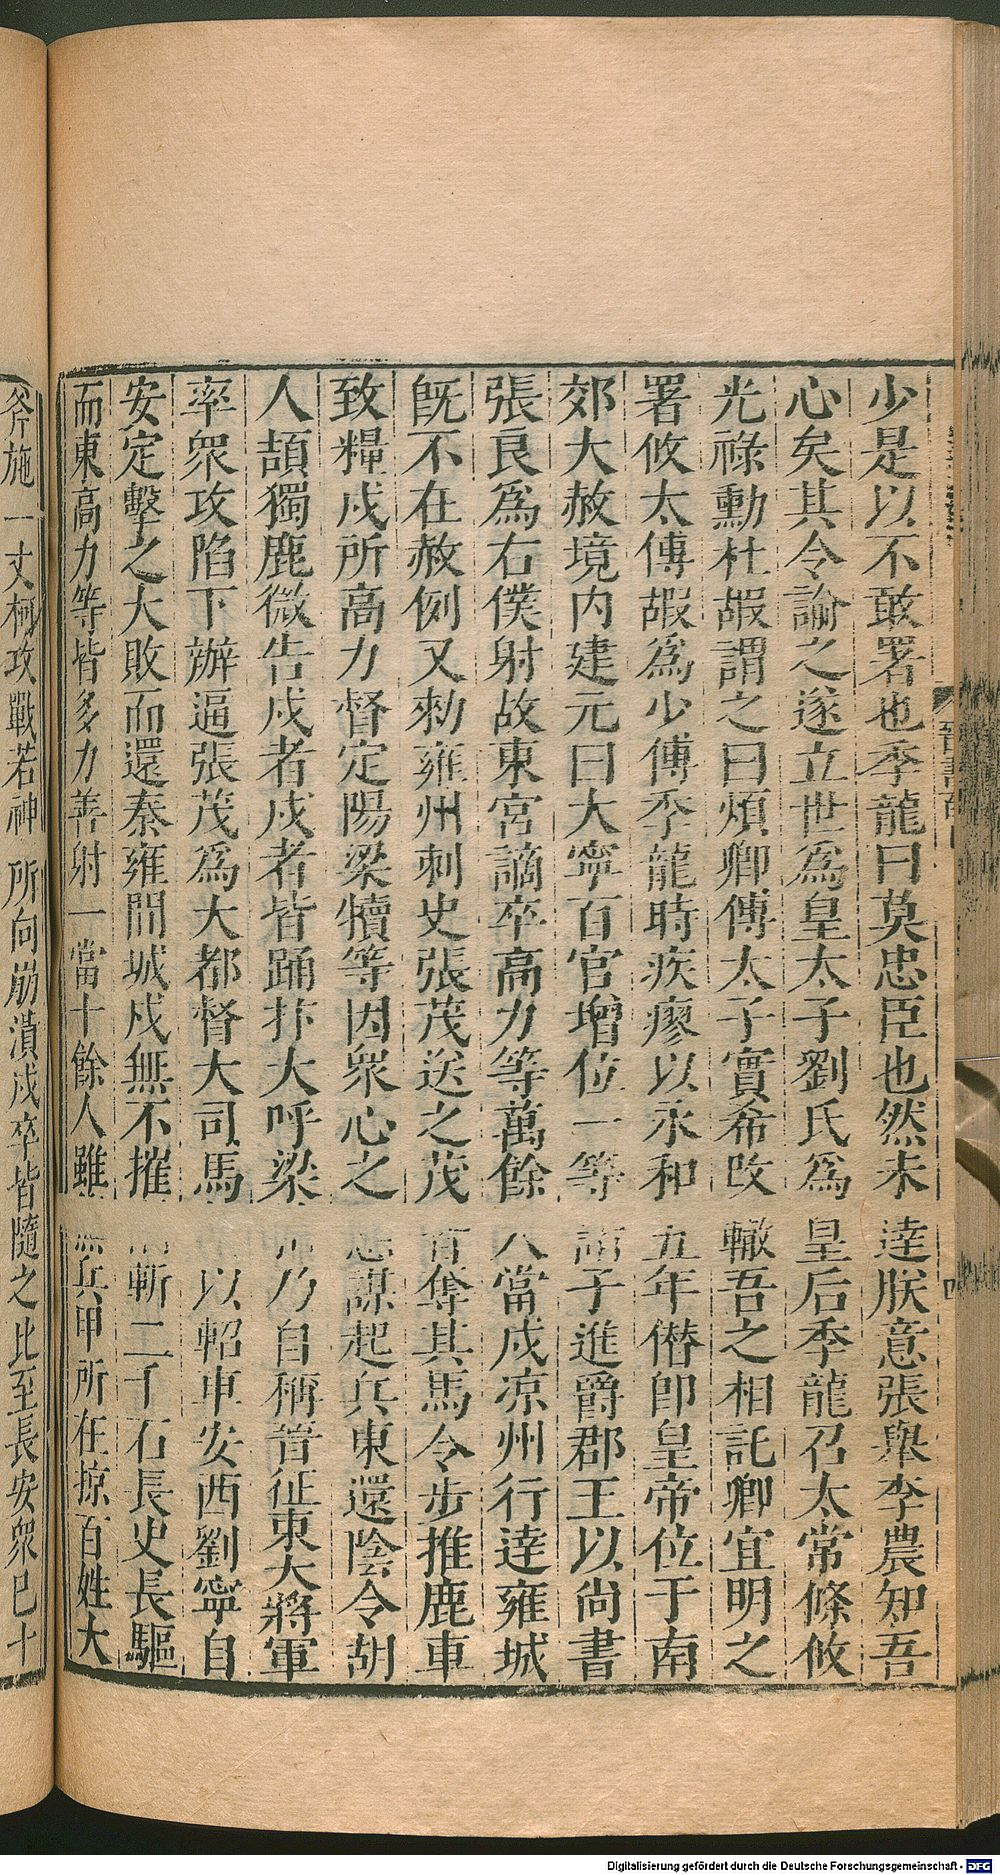 少是以不敢署也季龍曰莫忠臣也然未達朕意張舉李農知吾
心矣其令諭之遂立世爲皇太子劉氏爲皇后季龍召太常條攸
光祿勳杜嘏謂之曰煩卿傅太子實希改轍吾之相託卿宜明之
署攸太傅嘏爲少傅季龍時疾瘳以永和五年僭卽皇帝位于南
郊大赦境內建元曰大寧百官增位一等諸子進爵郡王以尙書
張良爲右僕射故東宮謫卒高力等萬餘人當戍凉州行達雍城
旣不在赦例又勑雍州刺史張茂送之茂皆奪其馬令步推鹿車
致糧戍所高力督定陽梁犢等因衆心之怨謀起兵東還陰令胡
人頡獨鹿微告戍者戍者皆踊抃大呼梁犢乃自稱晉征東大將軍
率衆攻陷下辦逼張茂爲大都督大司馬以軺車安西劉寧自
安定擊之大敗而還秦雍間城戍無不摧斬二千石長史長驅
而東高力等皆多力善射一當十餘人雖無兵甲所在掠百姓大
斧施一丈柯攻戰若神所向崩潰戍卒皆隨之比至長安衆已十
Digitalisierung gefördert durch die Deutsche Forschungsgemeinschaft - DFG